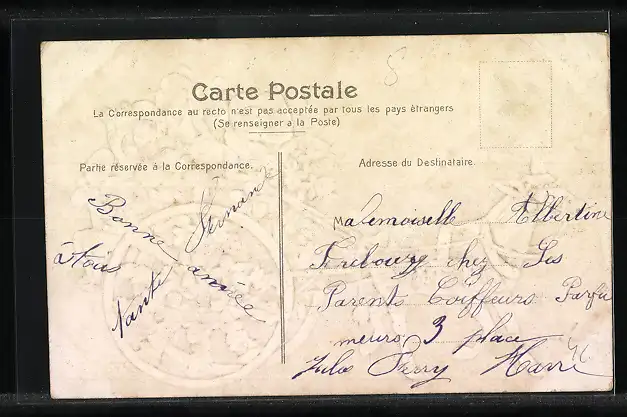 Carte Postale
La Correspondance au recto n'est pas acceptée par tous les pays étrangers
(Se renseigner a la Poste)
Partie réservée à la Correspondance.
Adresse du Destinataire.
Bonne année
à tous
tante
Fernande
Mademoiselle Albertine
Fribourg chez Ses
Parents Coiffeurs Parfu
meurs 3 place
Jules Ferry